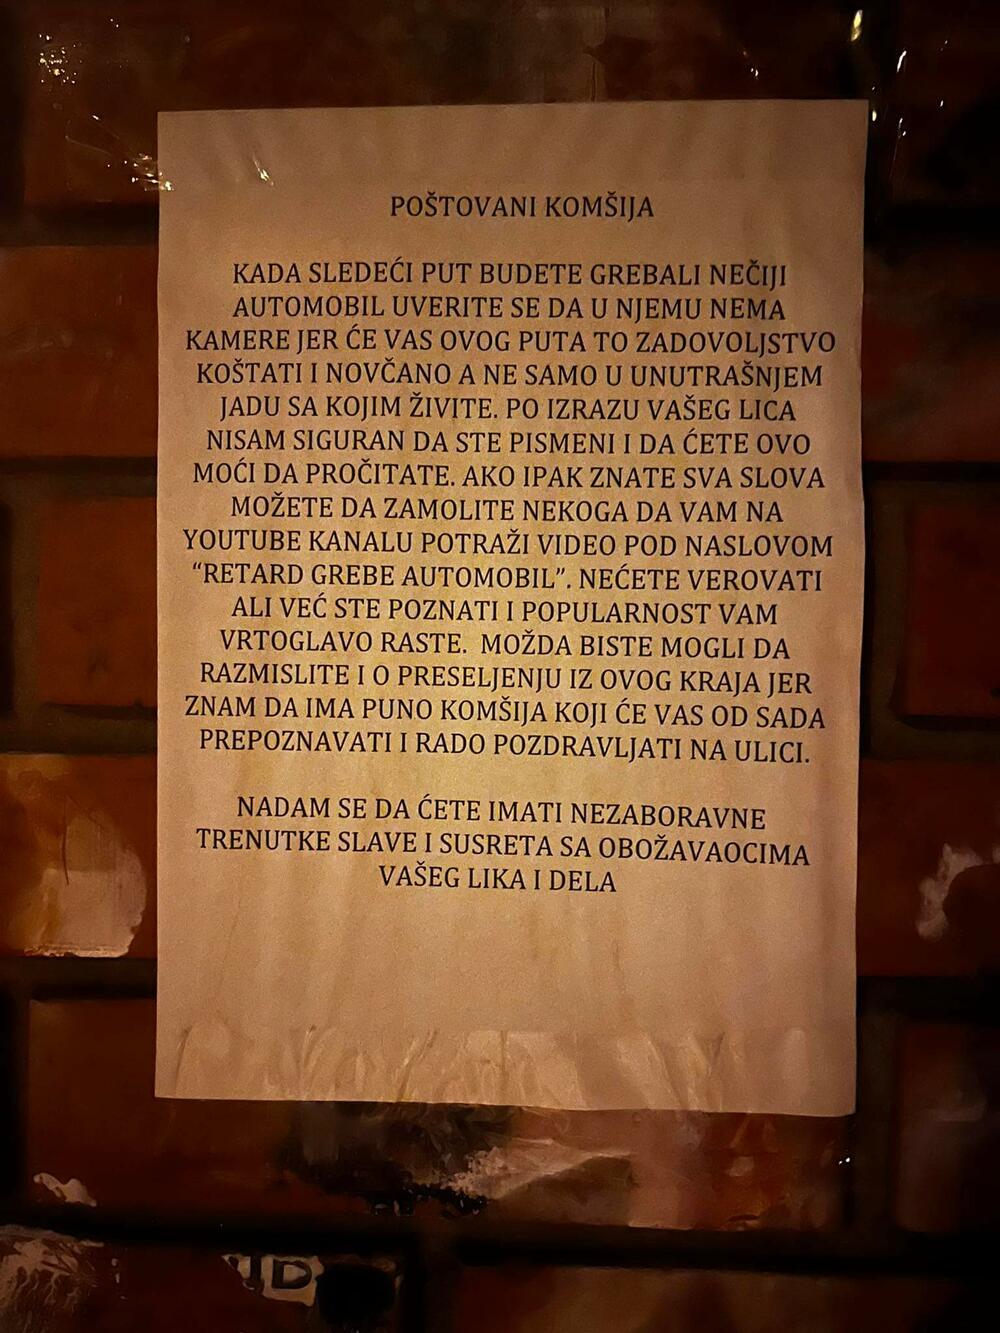 POŠTOVANI KOMŠIJA
KADA SLEDEĆI PUT BUDETE GREBALI NEČIJI
AUTOMOBIL UVERITE SE DA U NJEMU NEMA
KAMERE JER ĆE VAS OVOG PUTA TO ZADOVOLJSTVO
KOŠTATI I NOVČANO A NE SAMO U UNUTRAŠNJEM
JADU SA KOJIM ŽIVITE. PO IZRAZU VAŠEG LICA
NISAM SIGURAN DA STE PISMENI I DA ĆETE OVO
MOĆI DA PROČITATE. AKO IPAK ZNATE SVA SLOVA
MOŽETE DA ZAMOLITE NEKOGA DA VAM NA
YOUTUBE KANALU POTRAŽI VIDEO POD NASLOVOM
“RETARD GREBE AUTOMOBIL”. NEĆETE VEROVATI
ALI VEĆ STE POZNATI I POPULARNOST VAM
VRTOGLAVO RASTE. MOŽDA BISTE MOGLI DA
RAZMISLITE I O PRESELJENJU IZ OVOG KRAJA JER
ZNAM DA IMA PUNO KOMŠIJA KOJI ĆE VAS OD SADA
PREPOZNAVATI I RADO POZDRAVLJATI NA ULICI.
NADAM SE DA ĆETE IMATI NEZABORAVNE
TRENUTKE SLAVE I SUSRETA SA OBOŽAVAOCIMA
VAŠEG LIKA I DELA